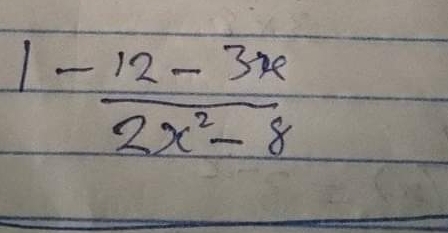 1 - 12 - 3x
2x² - 8